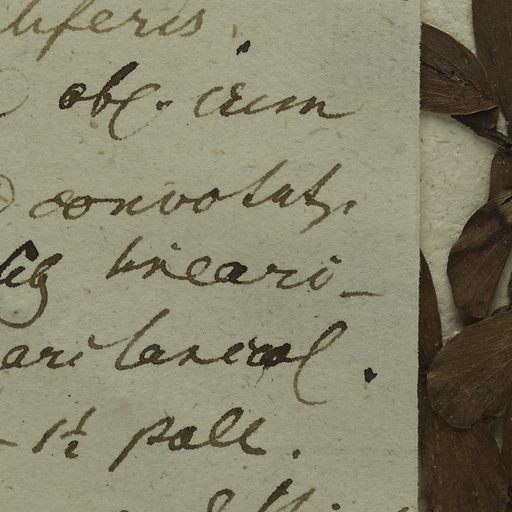 liferis.
obl. cum
convolut.
lineari-
ari lanceol.
- 1½ poll.